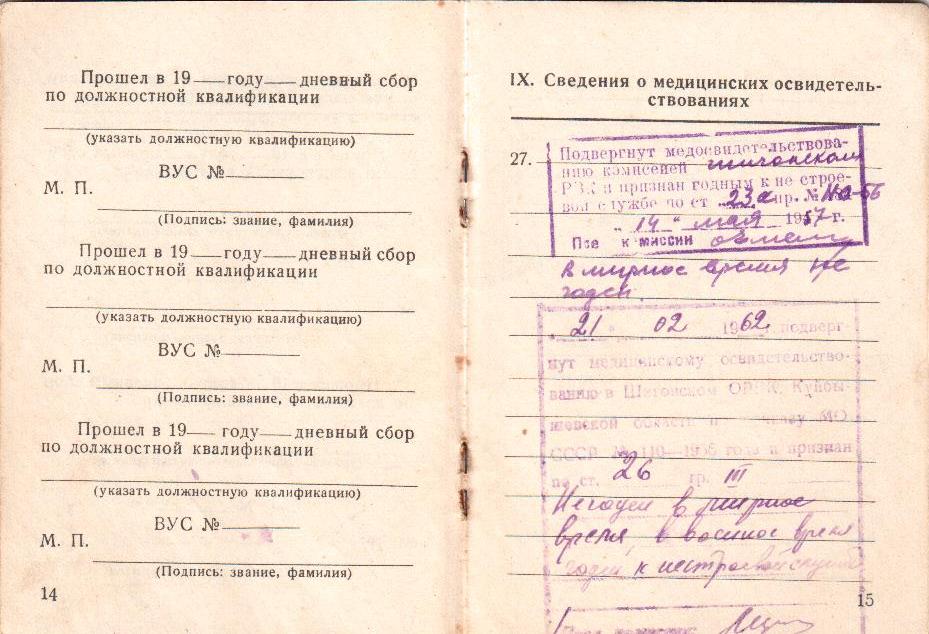 Прошел в 19 году дневный сбор
по должностной квалификации
(указать должностную квалификацию)
ВУС №
М. П.
(Подпись: звание, фамилия)
Прошел в 19 году дневный сбор
по должностной квалификации
(указать должностную квалификацию)
ВУС №
М. П.
(Подпись: звание, фамилия)
Прошел в 19 году дневный сбор
по должностной квалификации
(указать должностную квалификацию)
ВУС №
М. П.
(Подпись: звание, фамилия)
14
IX. Сведения о медицинских освидетель-
ствованиях
27.
Подвергнут медосвидетельствова-
нию комиссией
РВК и признан годным к не строе-
вой службе по ст. 23а пр. №
"14" мая 1957 г.
к миссии
в мирное время не
годен.
"21" 02 1962 подверг-
нут медицинскому освидетельство-
ванию в Шигонском Куйбы-
шевской области МО
СССР № 110—195 года и признан
по ст. 26 гр. III
Негоден в мирное
время, в военное время
годен к нестроевой службе
15